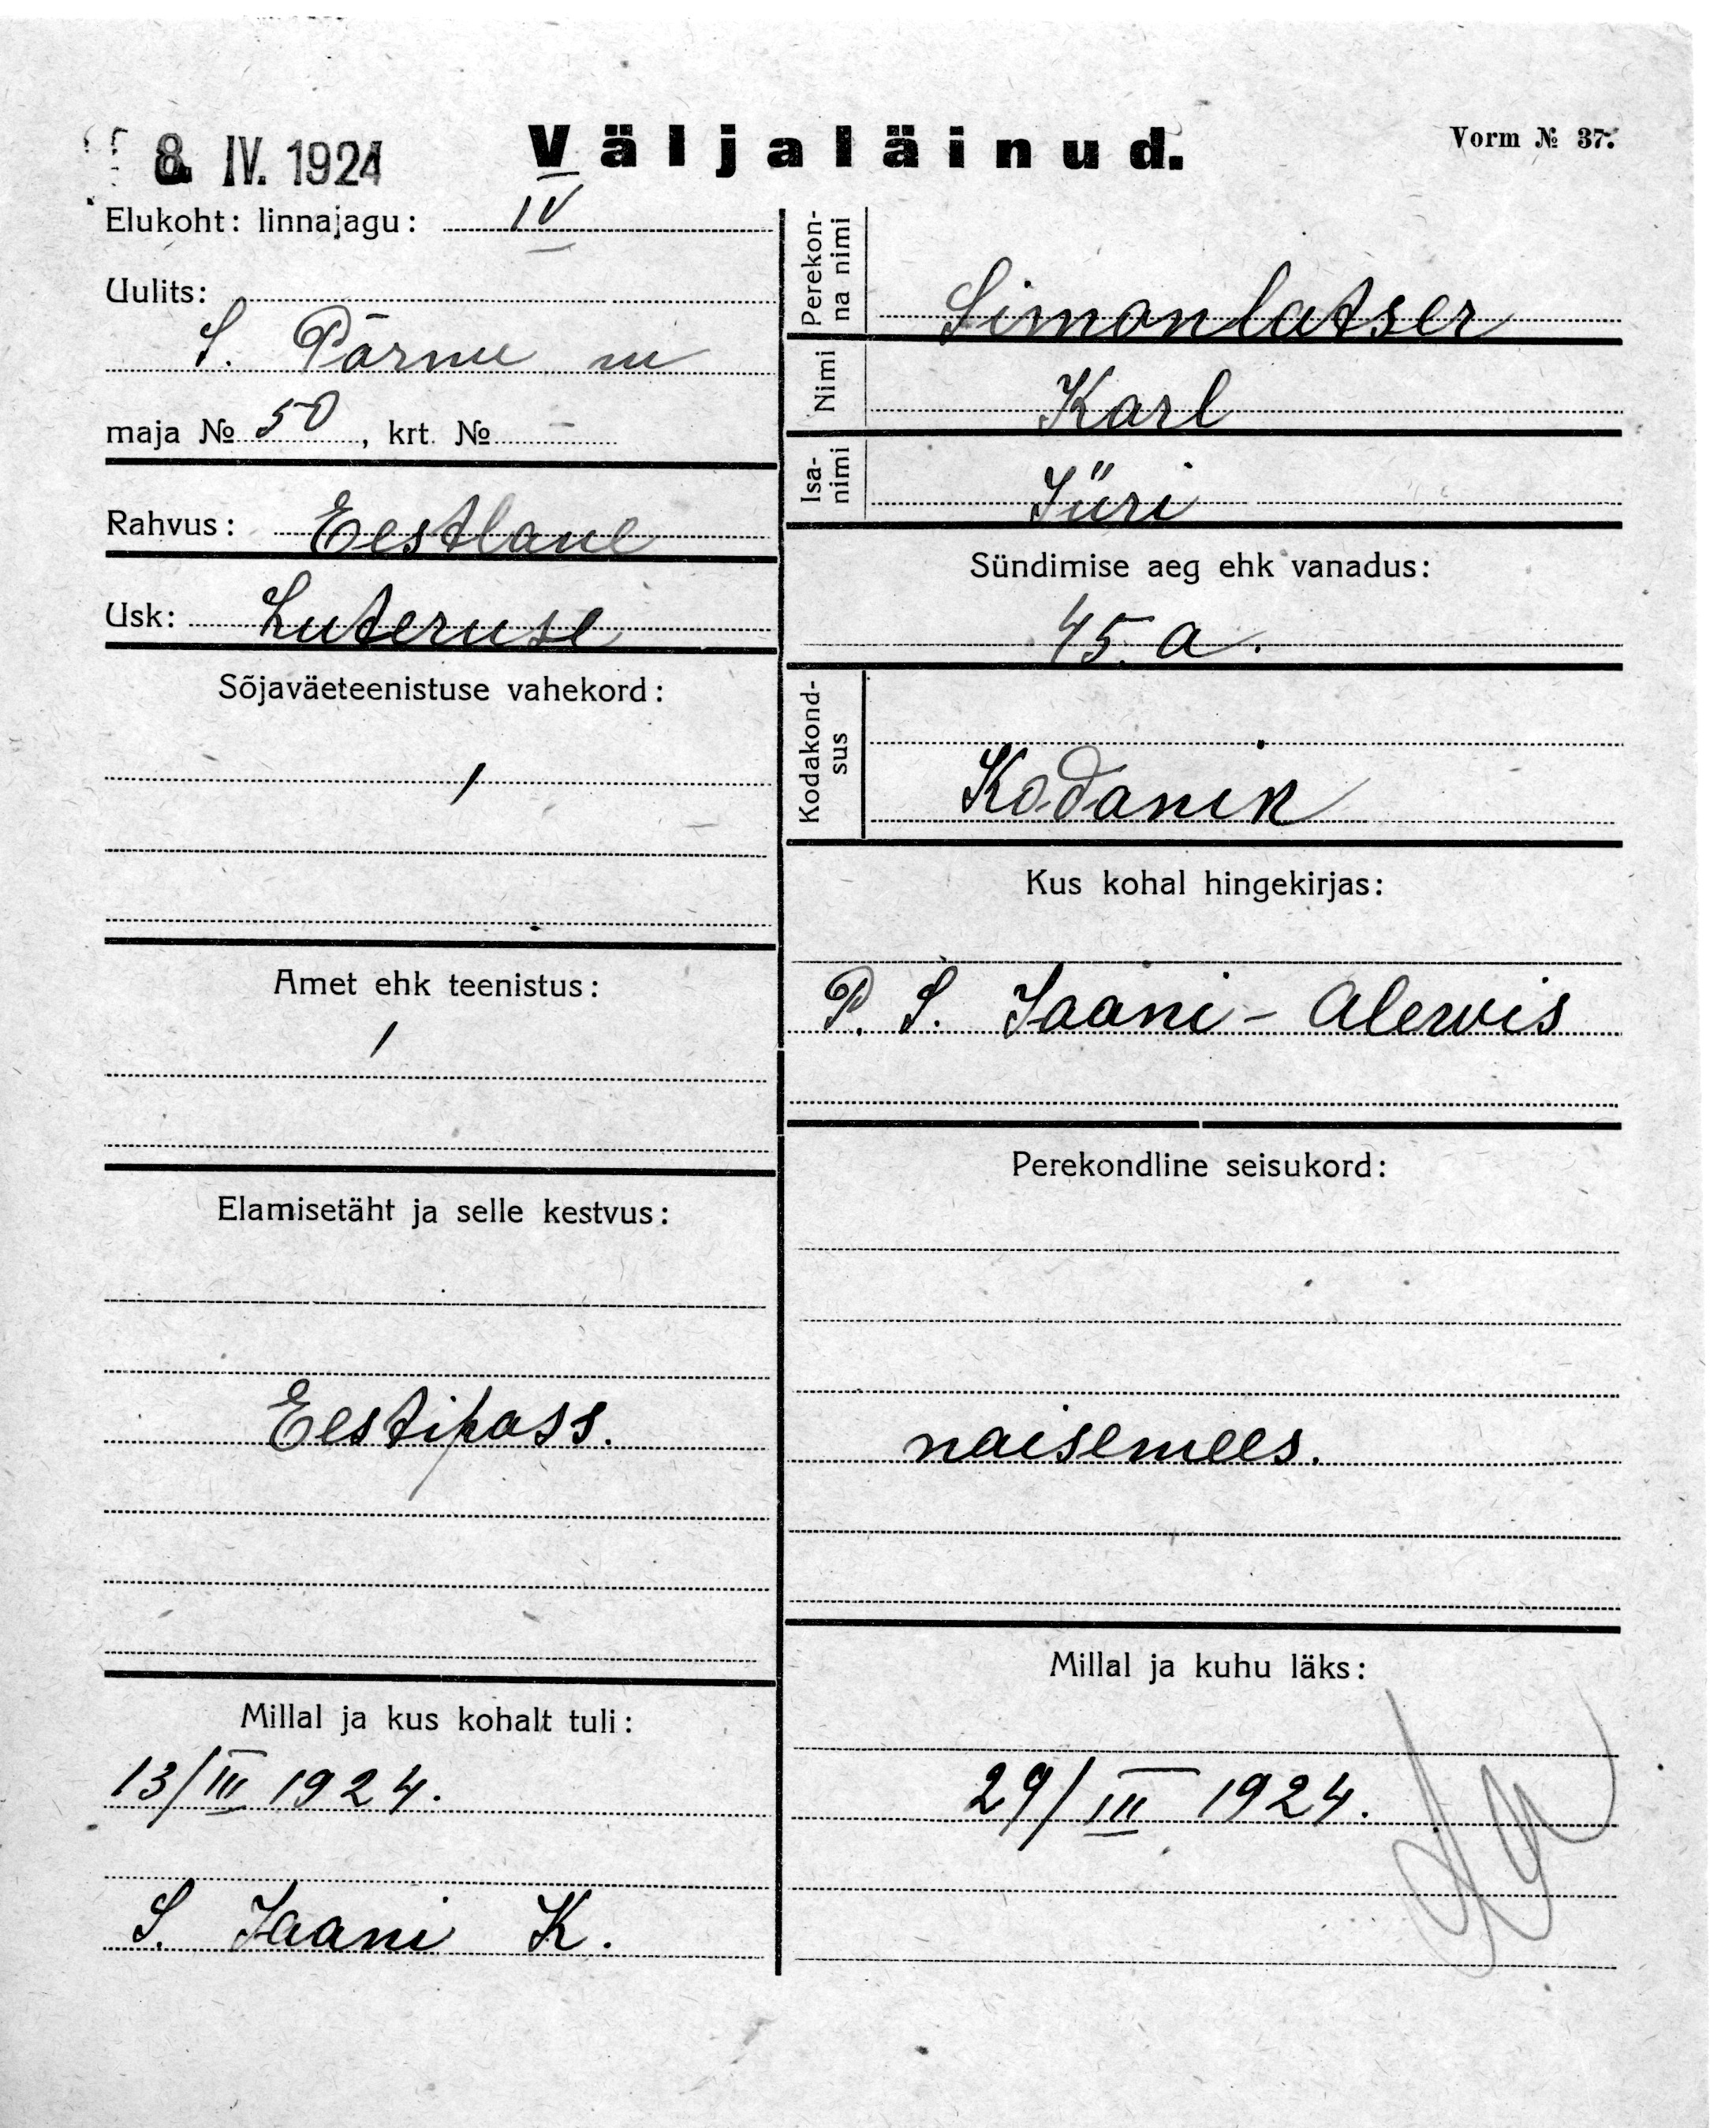 8. IV. 1924
Väljaläinud.
Vorm № 37.
Elukoht: linnajagu: IV
Uulits:
S. Pärnu m
maja № 50, krt. № -
Rahvus: Eestlane
Usk: Luteruse
Sõjaväeteenistuse vahekord:
Amet ehk teenistus:
Elamisetäht ja selle kestvus:
Eestipass.
Millal ja kus kohalt tuli:
13/III 1924.
S. Jaani K.
Perekon-
na nimi
Simonlatser
Nimi Karl
Isa-
nimi
Jüri
Sündimise aeg ehk vanadus:
45. a.
Kodakond-
sus
Kodanik
Kus kohal hingekirjas:
P. S. Jaani - Alewis
Perekondline seisukord:
naisemees.
Millal ja kuhu läks:
29/III 1924.